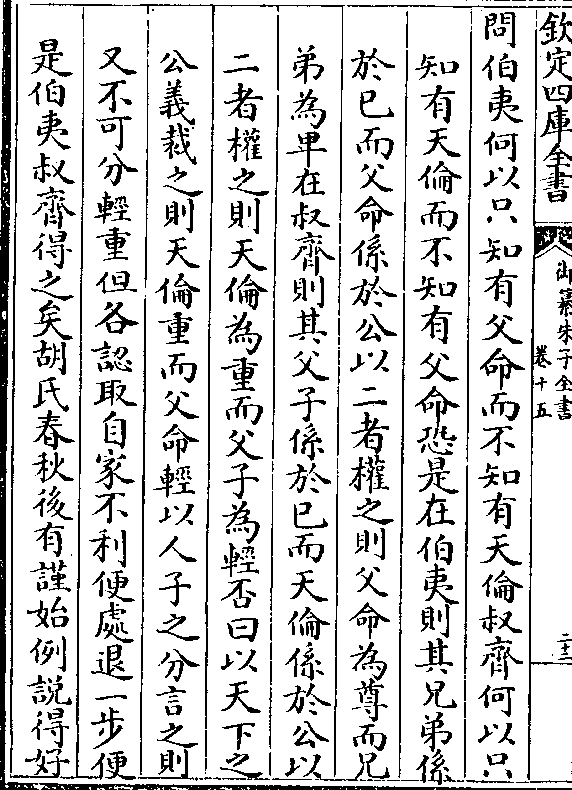 欽定四庫全書
御纂朱子全書
卷十五
二十三
問伯夷何以只知有父命而不知有天倫叔齊何以只
知有天倫而不知有父命恐是在伯夷則其兄弟係
於已而父命係於公以二者權之則父命為尊而兄
弟為卑在叔齊則其父子係於已而天倫係於公以
二者權之則天倫為重而父子為輕否曰以天下之
公義裁之則天倫重而父命輕以人子之分言之則
又不可分輕重但各認取自家不利便處退一步便
是伯夷叔齊得之矣胡氏春秋後有謹始例説得好